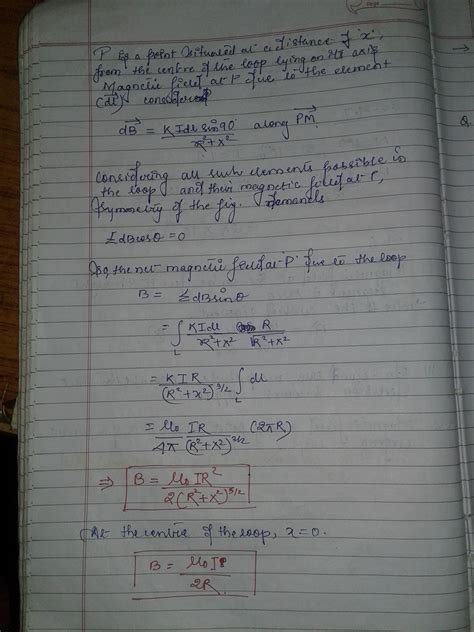 P is a point situated at a distance of 'x',
from the centre of the loop lying on its axis
Magnetic field at P due to the element
(dl) considered
dB = KIdl sin90° / R²+x² along PM
Considering all such elements possible in
the loop and their magnetic field at P,
symmetry of the fig. demands
Σ dBcosθ = 0
So, the net magnetic field at 'P' due to the loop
B = Σ dBsinθ
= ∫L KIdl / R²+x² R / √R²+x²
= KIR / (R²+x²)^3/2 ∫L dl
= μ₀ IR / 4π (R²+x²)^3/2 (2πR)
⇒ B = μ₀ IR² / 2(R²+x²)^3/2
At the centre of the loop, x=0.
B = μ₀I / 2R
Q.